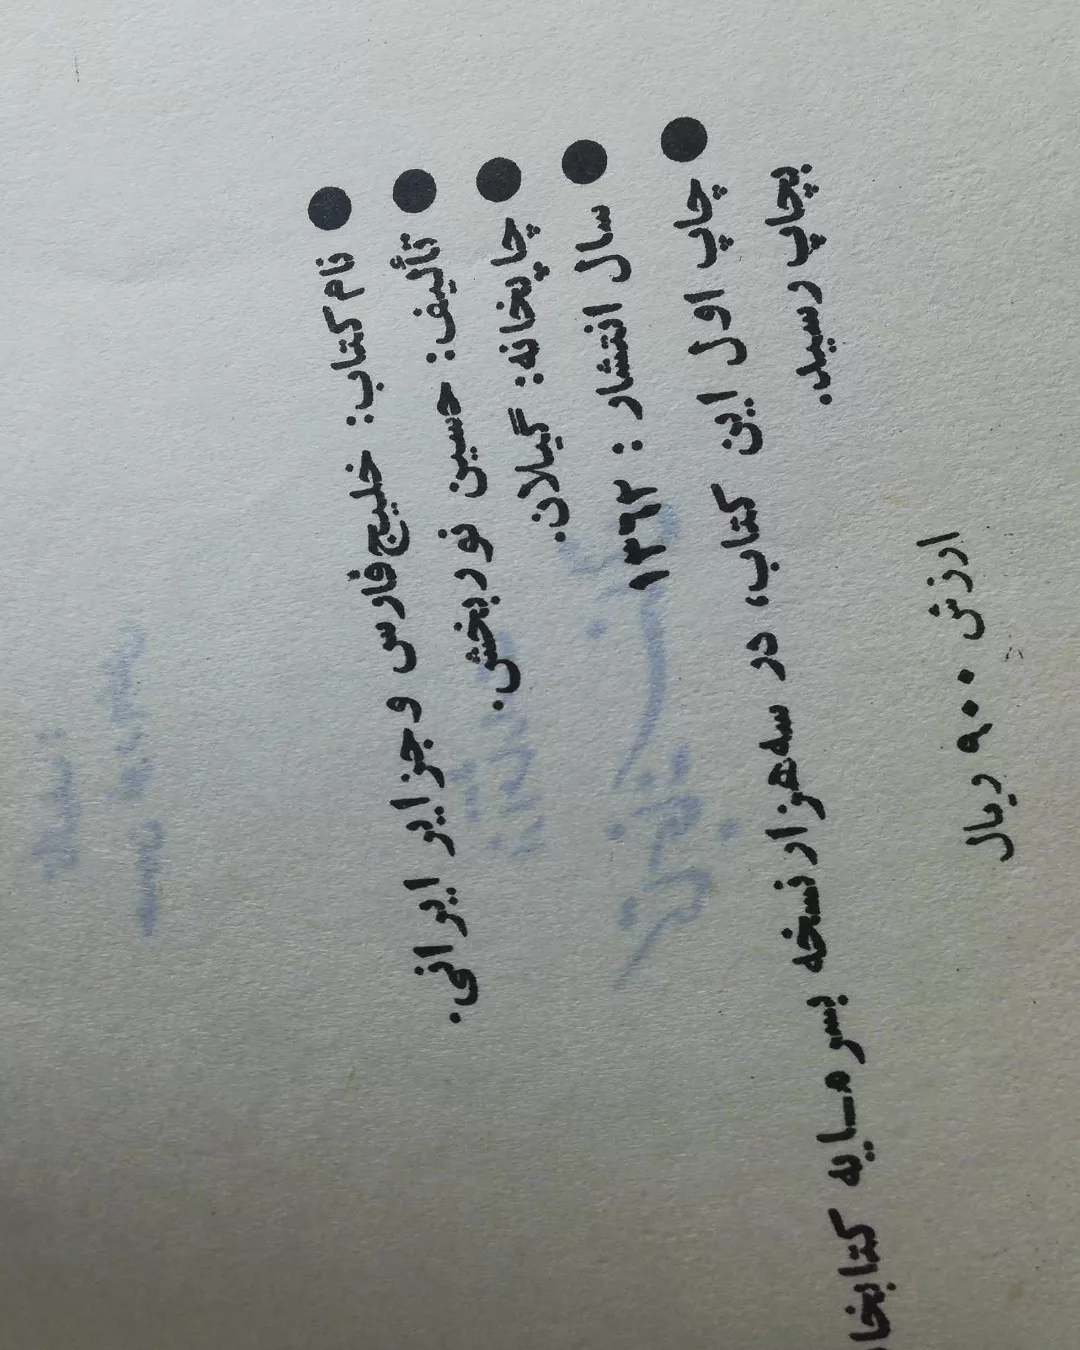 ● نام کتاب: خلیج فارس و جزایر ایرانی.
● تألیف: حسین نوربخش.
● چاپخانه: گیلان.
● سال انتشار: ۱۳۶۲
● چاپ اول این کتاب، در سه هزار نسخه بسرمایه
بچاپ رسید.
ارزش ۹۰۰ ریال